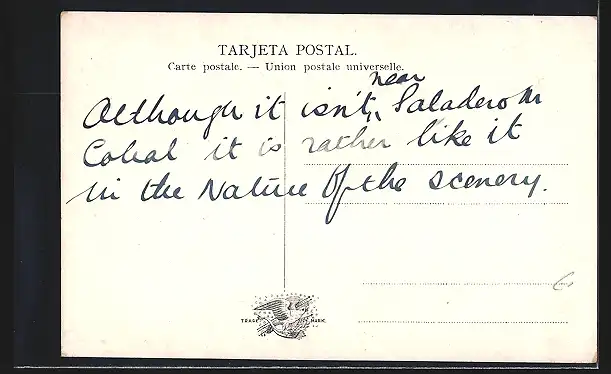 TARJETA POSTAL.
Carte postale. — Union postale universelle.
near
Although it isn't " Saladero or
Cobal it is rather like it
in the Nature of the scenery.
TRADE MARK.